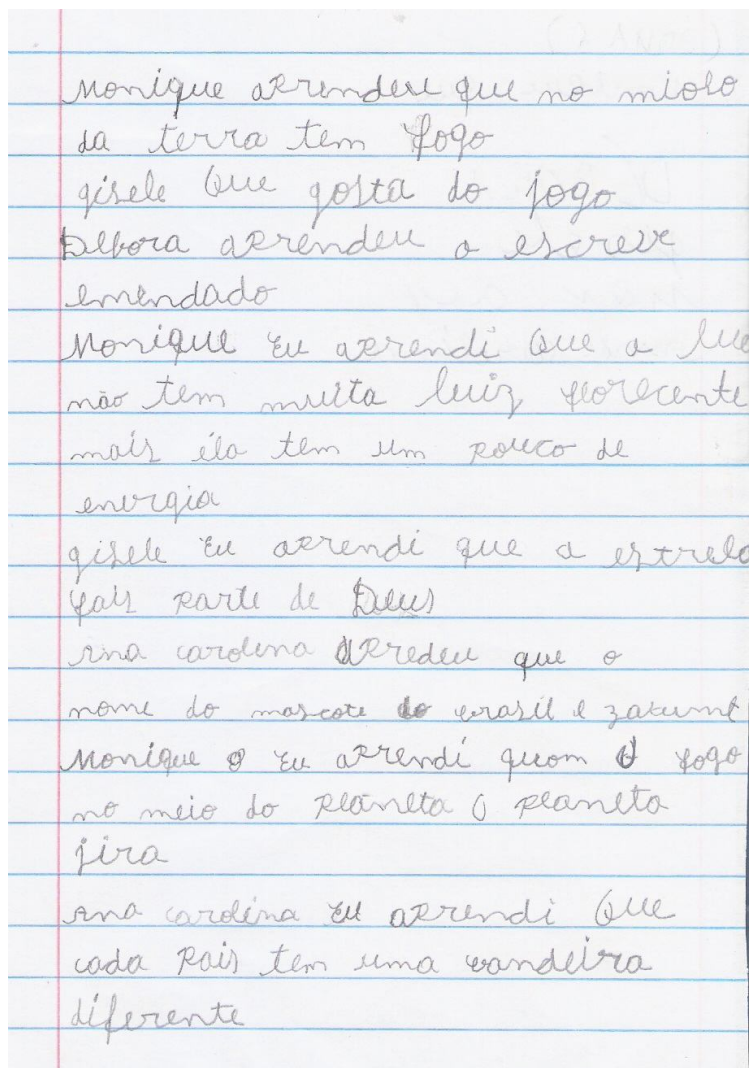 Monique aprendeu que no miolo
da terra tem fogo
gisele que gosta do jogo
Debora aprendeu a escreve
emendado
Monique Eu aprendi que a lue
não tem muita luiz florecente
mais éla tem um pouco de
energia
gisele Eu aprendi que a estrela
fais parte de Deus
Ana carolina apredeu que o
nome do mascote do brasil e zakumi
Monique Eu aprendi quom o fogo
no meio do planeta o planeta
jira
Ana carolina Eu aprendi que
cada pais tem uma bandeira
diferente